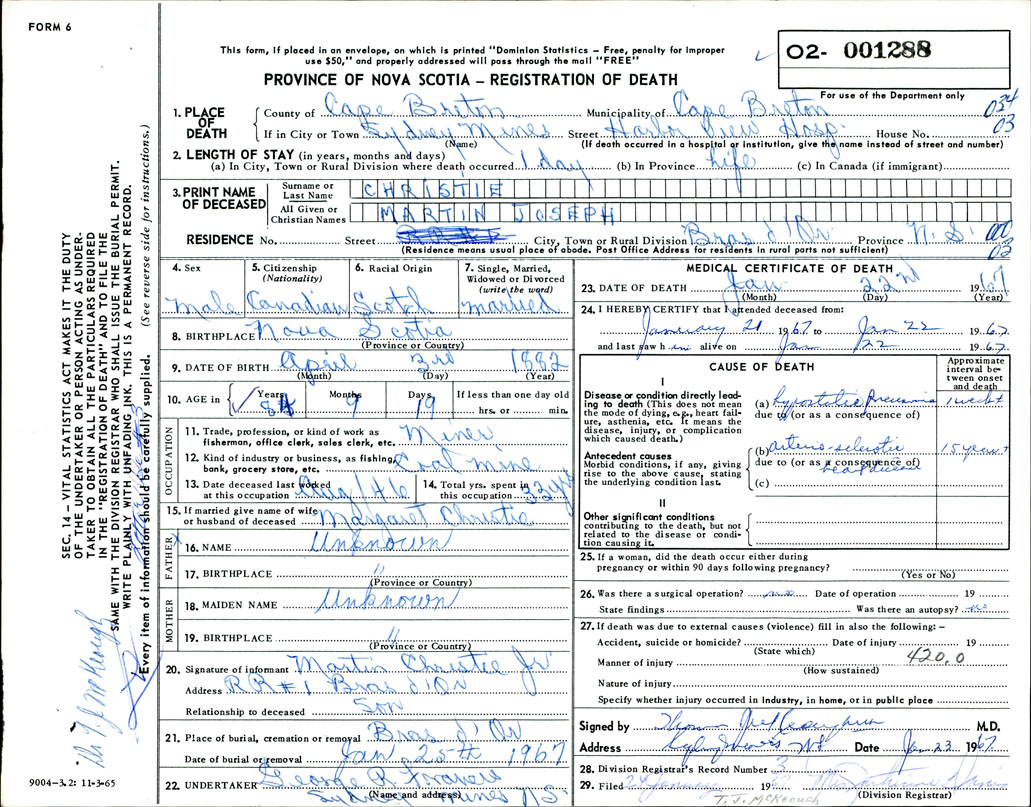 FORM 6
This form, if placed in an envelope, on which is printed "Dominion Statistics – Free, penalty for improper
use $50," and properly addressed will pass through the mail "FREE"
PROVINCE OF NOVA SCOTIA – REGISTRATION OF DEATH
O2- 001288
For use of the Department only
034
03
1. PLACE OF DEATH
County of Cape Breton Municipality of Cape Breton
If in City or Town Sydney Mines Street Harbor View Hosp. House No.
(Name) (If death occurred in a hospital or institution, give the name instead of street and number)
2. LENGTH OF STAY (in years, months and days)
(a) In City, Town or Rural Division where death occurred 1 day (b) In Province Life (c) In Canada (if immigrant)
3. PRINT NAME OF DECEASED
Surname or Last Name CHRISTIE
All Given or Christian Names MARTIN JOSEPH
RESIDENCE No. Street City, Town or Rural Division Bras d'Or Province N.S. 00
03
(Residence means usual place of abode. Post Office Address for residents in rural parts not sufficient)
4. Sex
Male
5. Citizenship
(Nationality)
Canadian
6. Racial Origin
Scotch
7. Single, Married,
Widowed or Divorced
(write the word)
married
8. BIRTHPLACE Nova Scotia
(Province or Country)
9. DATE OF BIRTH April 3rd 1882
(Month) (Day) (Year)
10. AGE in Years Months Days If less than one day old
84 9 19 hrs. or min.
OCCUPATION
11. Trade, profession, or kind of work as
fisherman, office clerk, sales clerk, etc. Miner
12. Kind of industry or business, as fishing,
bank, grocery store, etc. Coal mine
13. Date deceased last worked
at this occupation Aug/46
14. Total yrs. spent in
this occupation 33 yrs
15. If married give name of wife
or husband of deceased Margaret Christie
FATHER
16. NAME Unknown
17. BIRTHPLACE "
(Province or Country)
MOTHER
18. MAIDEN NAME Unknown
19. BIRTHPLACE "
(Province or Country)
20. Signature of informant Martin Christie Jr
Address RR#1 Bras d'Or
Relationship to deceased Son
21. Place of burial, cremation or removal Bras d'Or
Date of burial or removal Jan 25th 1967
22. UNDERTAKER George R
Sydney Mines N.S.
(Name and address)
MEDICAL CERTIFICATE OF DEATH
23. DATE OF DEATH Jan. 22nd 1967
(Month) (Day) (Year)
24. I HEREBY CERTIFY that I attended deceased from:
January 21 1967 to Jan 22 1967
and last saw him alive on Jan 22 1967.
CAUSE OF DEATH
Approximate interval between onset and death
I
Disease or condition directly leading to death (This does not mean
the mode of dying, e.g., heart failure, asthenia, etc. It means the
disease, injury, or complication
which caused death.)
(a) hypostatic Pneumonia 1 week
due to (or as a consequence of)
Antecedent causes
Morbid conditions, if any, giving
rise to the above cause, stating
the underlying condition last.
(b) arterio sclerotic 15 years
due to (or as a consequence of)
heart disease
(c)
II
Other significant conditions
contributing to the death, but not
related to the disease or condition causing it.
25. If a woman, did the death occur either during
pregnancy or within 90 days following pregnancy?
(Yes or No)
26. Was there a surgical operation? no Date of operation 19
State findings Was there an autopsy? no
27. If death was due to external causes (violence) fill in also the following: –
Accident, suicide or homicide? Date of injury 19
(State which)
Manner of injury 420.0
(How sustained)
Nature of injury
Specify whether injury occurred in industry, in home, or in public place
Signed by M.D.
Address Sydney Mines NS Date Jan 23 1967
28. Division Registrar's Record Number 3
29. Filed 24 January
(Division Registrar)
T. J. McKEOUGH
SEC. 14 – VITAL STATISTICS ACT MAKES IT THE DUTY
OF THE UNDERTAKER OR PERSON ACTING AS UNDERTAKER TO OBTAIN ALL THE PARTICULARS REQUIRED
IN THE "REGISTRATION OF DEATH" AND TO FILE THE
SAME WITH THE DIVISION REGISTRAR WHO SHALL ISSUE THE BURIAL PERMIT.
WRITE PLAINLY WITH UNFADING INK. THIS IS A PERMANENT RECORD.
Every item of information should be carefully supplied. (See reverse side for instructions.)
Dr T J McKeough
9004-3.2: 11-3-65